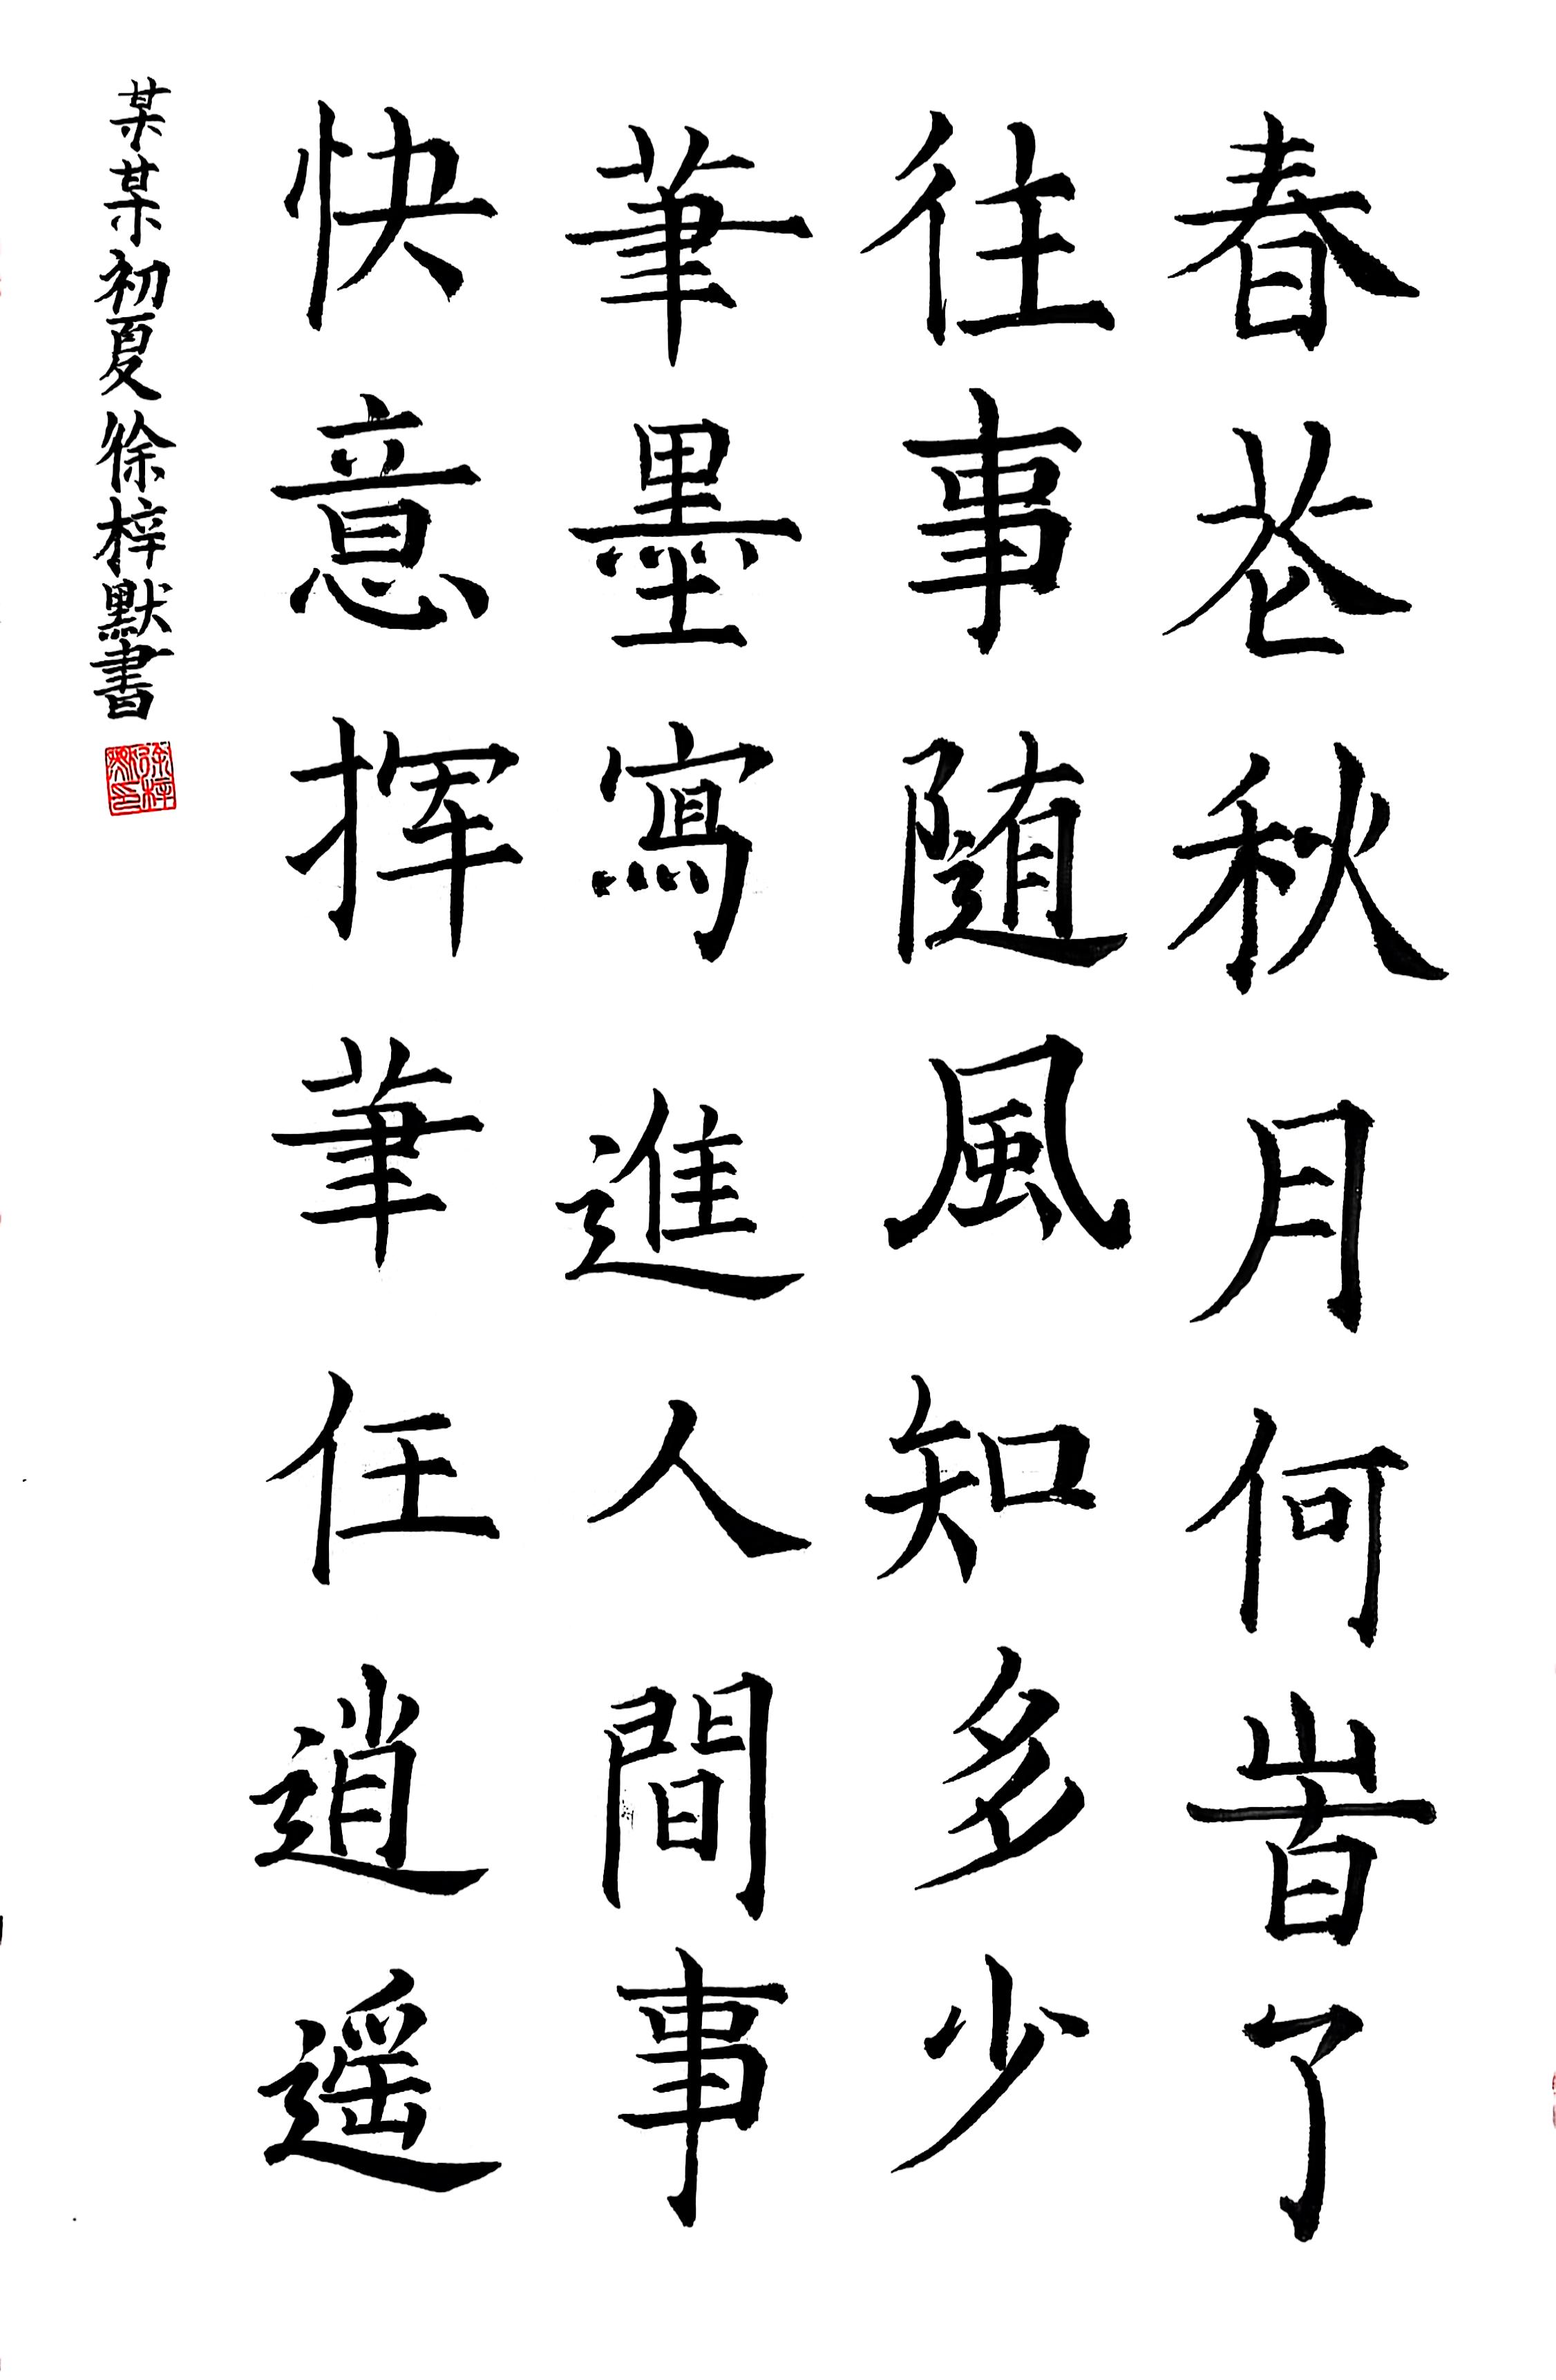 春花秋月何旹了
往事随風知多少
筆墨寫進人間事
快意挥筆任逍遥
某某初夏徐梓默書
徐梓默印